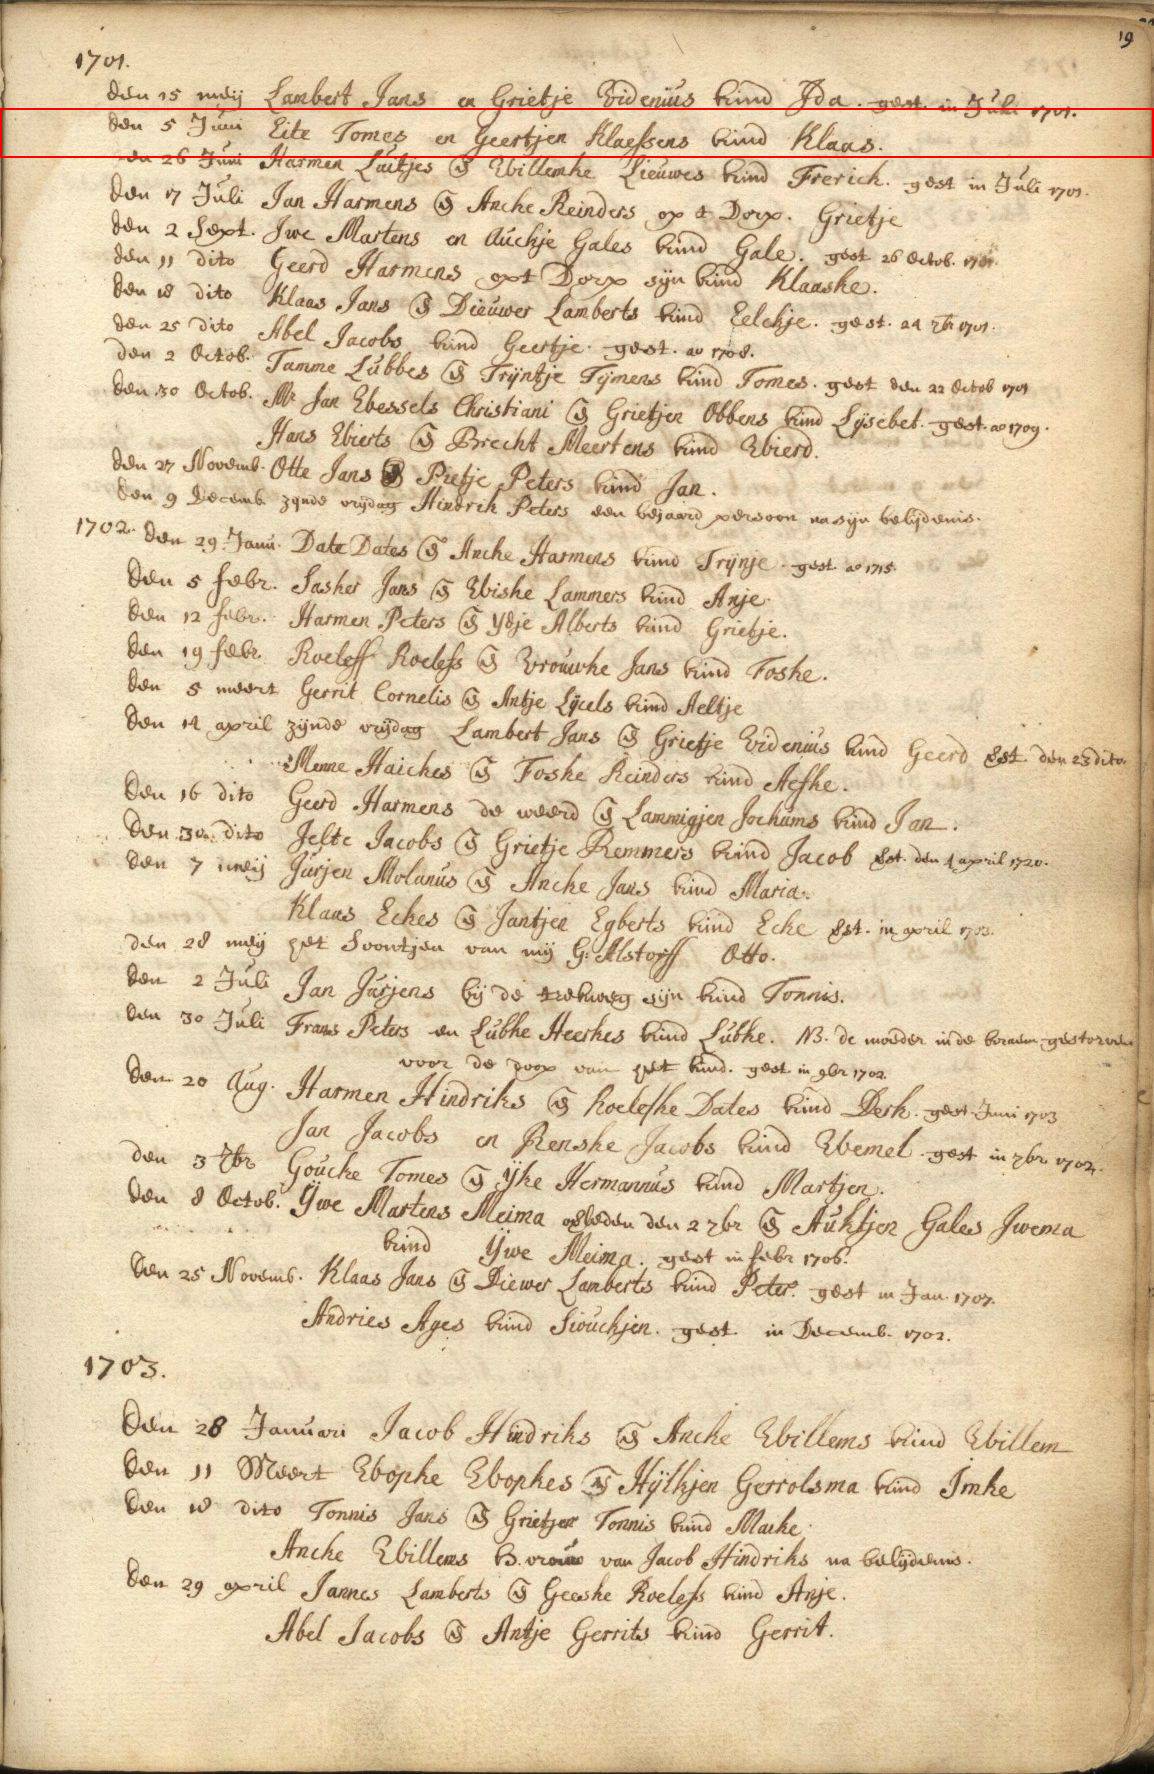 19
1701.
den 15 meij Lambert Jans en Grietje Videnius kind Ida. gest. in Juli 1701.
den 5 Juni Eite Tomes en Geertjen Klaessens kind Klaas.
den 26 Juni Harmen Luitjes & Willemke Lieuwes kind Frerich. gest in Juli 1701.
den 17 Juli Jan Harmens & Ancke Reinders op t Dorp. Grietje
den 2 Sept. Iwe Martens en Auckje Gales kind Gale. gest 26 Octob. 1701.
den 11 dito Geerd Harmens opt Dorp sijn kind Klaaske.
den 18 dito Klaas Jans & Dieuwer Lamberts kind Eelckje. gest. 24 7br 1701.
den 25 dito Abel Jacobs kind Geertje. gest. ao 1708.
den 2 Octob. Tamme Lubbes & Trijntje Tijmens kind Tomes. gest den 22 Octob 1701
den 30 Octob. Mr Jan Wessels Christiani & Grietjen Obbens kind Lijsebet. gest. ao 1709.
Hans Wierts & Brecht Meertens kind Wierd.
den 27 Novemb. Otte Jans & Pietje Peters kind Jan.
den 9 Decemb. zijnde vrijdag Hindrik Peters een bejaard persoon na sijn belijdenis.
1702. den 29 Janu. Date Dates & Ancke Harmens kind Trijnje. gest ao 1715.
den 5 febr. Sasker Jans & Wiske Lammers kind Anje.
den 12 febr. Harmen Peters & Ydje Alberts kind Grietje.
den 19 febr. Roeleff Roelefs & Vrouwke Jans kind Foske.
den 5 meert Gerrit Cornelis & Antje Lijcels kind Aeltje
den 14 april zijnde vrijdag Lambert Jans & Grietje Videnius kind Geerd Est. den 23 dito.
Menne Haickes & Foske Reinders kind Aefke.
den 16 dito Geerd Harmens de weerd & Lammigjen Jochums kind Jan.
den 30 dito Jelte Jacobs & Grietje Remmers kind Jacob Est. den 4 april 1720.
den 7 meij Jurjen Molanus & Ancke Jans kind Maria.
Klaas Eckes & Jantjen Egberts kind Ecke Est. in april 1703.
den 28 meij het Soontjen van mij G. Alstorff Otto.
den 2 Juli Jan Jurjens bij de trekweg sijn kind Tonnis.
den 30 Juli Frans Peters en Lubke Heerkes kind Lubke. NB. de moeder in de kraem gestorven
voor de doop van het kind. gest in 9br 1702.
den 20 Aug. Harmen Hindriks & Roelefke Dates kind Derk. gest Juni 1703
Jan Jacobs en Renske Jacobs kind Wemel. gest in 7br 1702.
den 3 7br Goucke Tomes & Yke Hermannus kind Martjen.
den 8 Octob. Ywe Martens Meima overleden den 2 7br & Auktjen Gales Iwema
kind Ywe Meima. gest in febr 1706.
den 25 Novemb. Klaas Jans & Diewer Lamberts kind Peter. gest in Jan. 1707.
Andries Ages kind Siouckjen. gest in Decemb. 1702.
1703.
den 28 Januari Jacob Hindriks & Ancke Willems kind Willem
den 11 Meert Wopke Wopkes & Hijlkjen Gerrolsma kind Imke
den 18 dito Tonnis Jans & Grietjen Tonnis kind Maike.
Ancke Willems h. vrouw van Jacob Hindriks na belijdenis.
den 29 april Jannes Lamberts & Geeske Roelefs kind Anje.
Abel Jacobs & Antje Gerrits kind Gerrit.